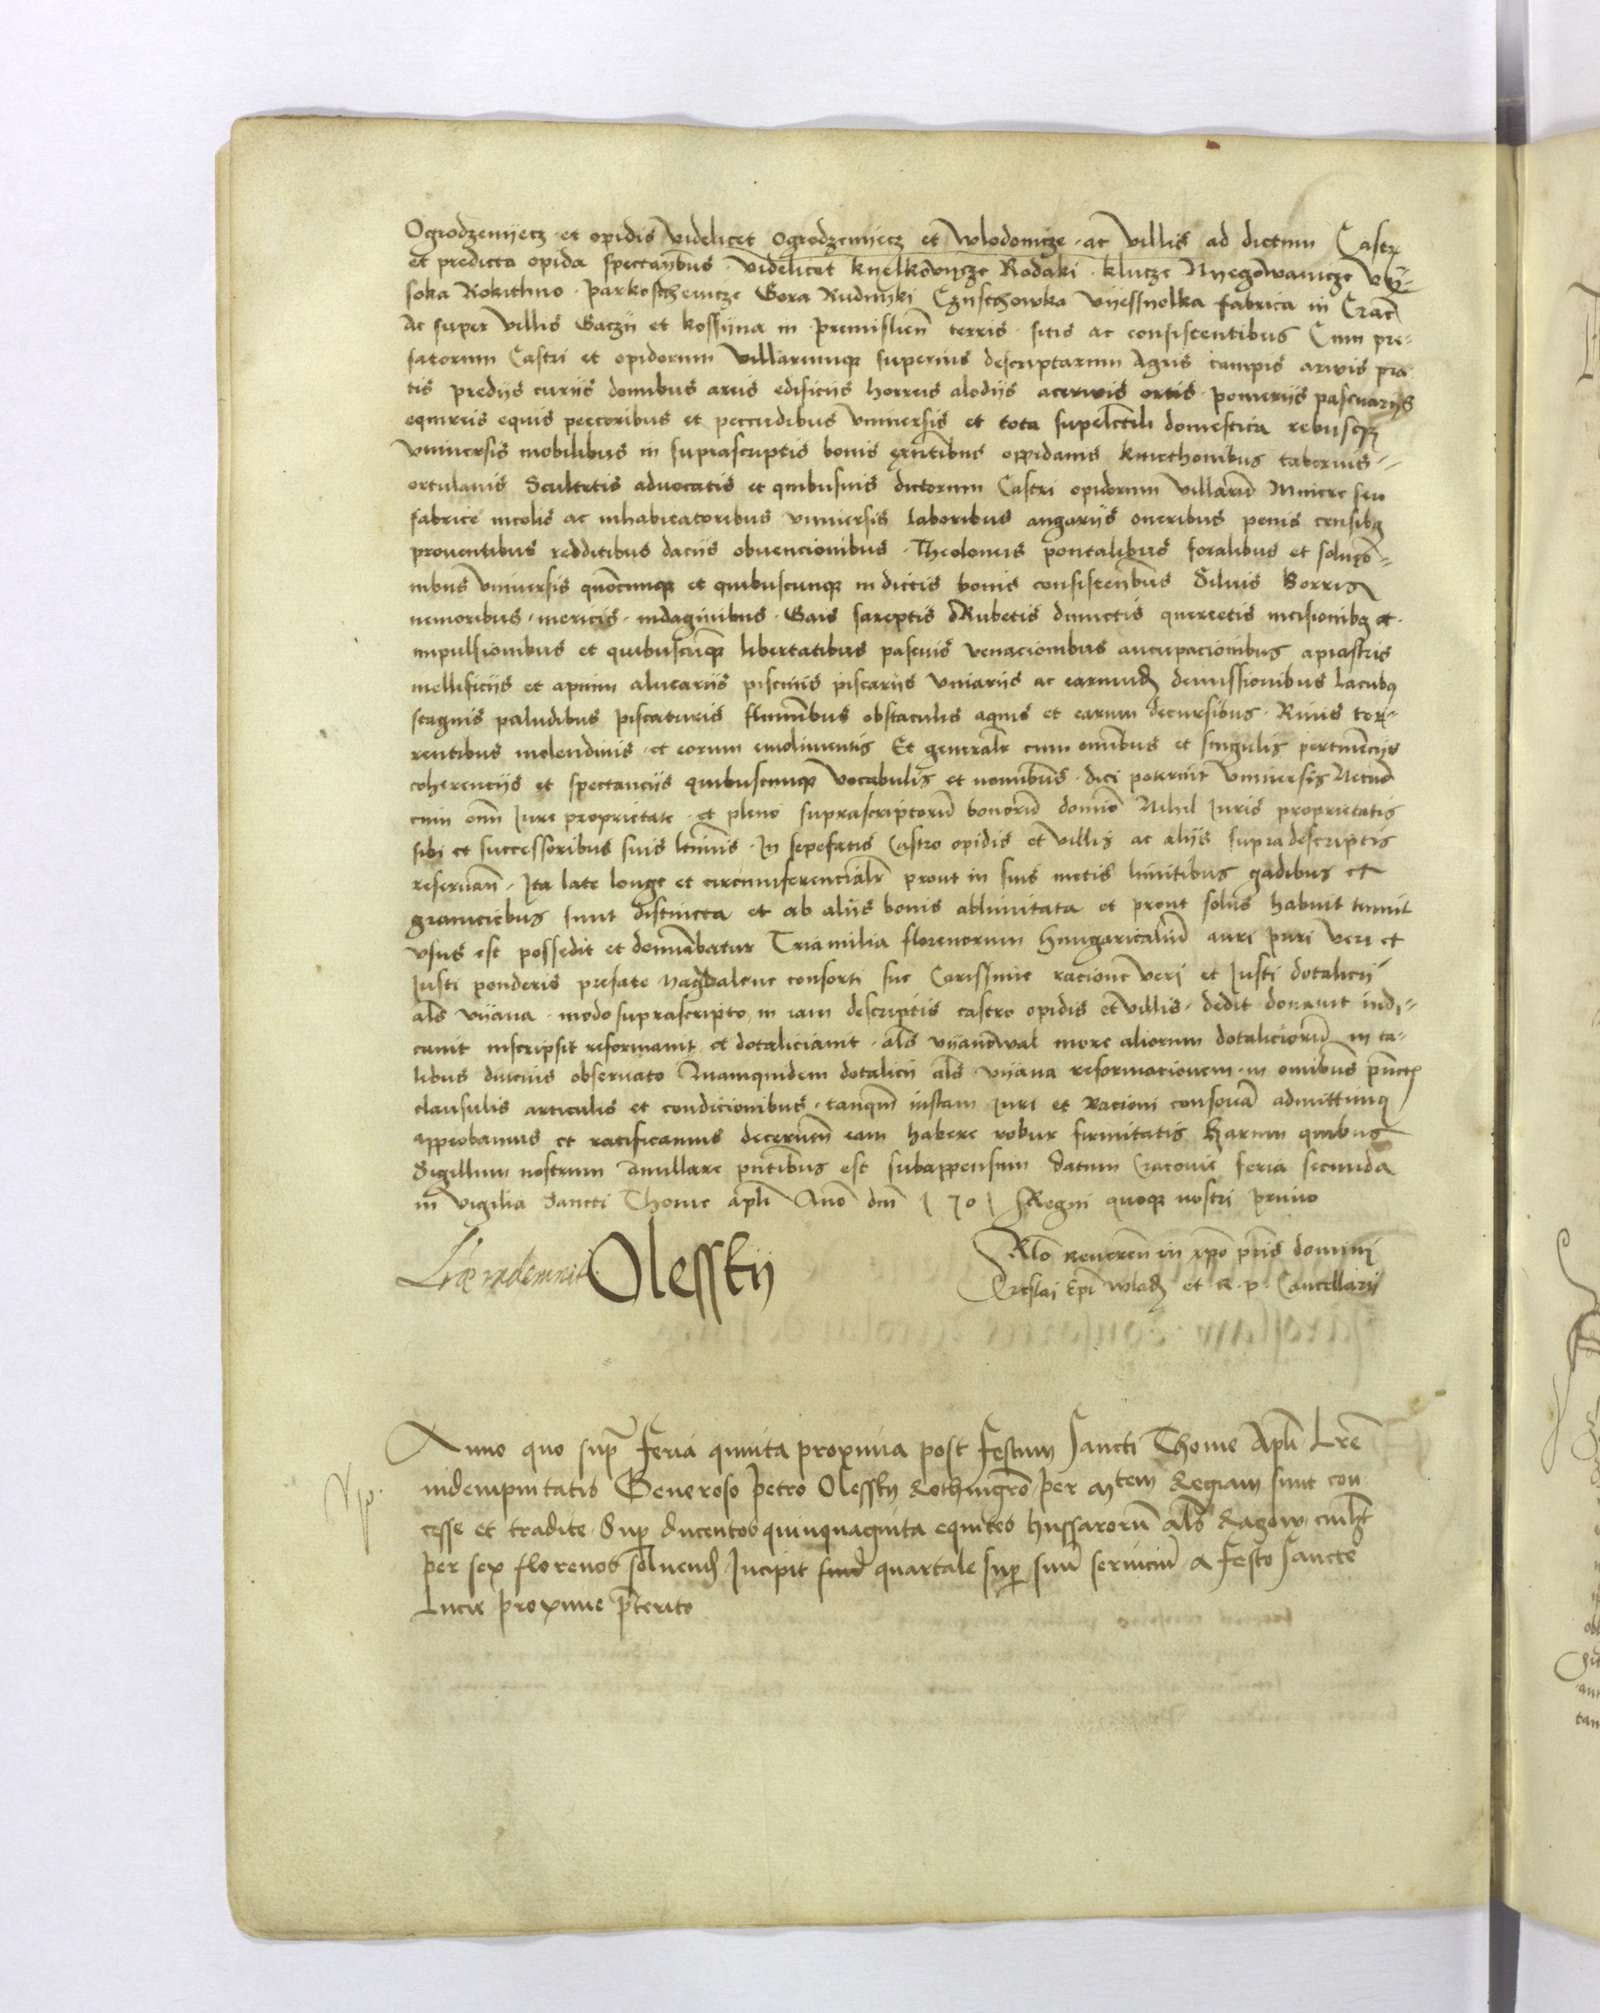 Ogrodzenyecz et opidis videlicet Ogrodzenyecz et Wlodowicze ac villis ad dictum Castr
et predicta opida spectantibus videlicet Kyelkowycze Rodaki Klucze Nyegowanicze Vy-
soka Rokithno Parkoschevicze Gora Rudnyki Czuschowka Vyessyolka fabrica in Crac
Ac super villis Gaczy et Kossyna in premislien terris sitis ac consistentibus Cum pre-
fatorum Castri et opidorum villarumque superius descriptarum Agris campis arvis pra
tis predijs curiis domibus areis edificijs horreis alodijs acervis ortis pomerijs pascuarijs
equireis equis pecoribus et peccudibus universis et tota supelectili domestica rebusque
universis mobilibus in suprascriptis bonis existentibus oppidanis kmethonibus tabernis
ortulanis Scultetis advocatis et quibusvis dictorum Castri opidorum villarum Minere seu
fabrice incolis ac inhabitatoribus universis laboribus angarijs oneribus penis censibus
proventibus redditibus dacijs obvencionibus Theoloneis pontalibus foralibus et solucio-
nibus universis quocumque et quibuscunque in dictis bonis consistentibus Silvis Borris
nemoribus mericis indaginibus Gais sareptis Rubetis dumetis quercetis incisionibus et
impulsionibus et quibuscunque libertatibus pascuis venacionibus aucupacionibus apiastris
mellificijs et apium alvearijs piscinis piscarijs vivarijs ac earundem demissionibus lacubus
stagnis paludibus piscaturis fluminibus obstaculis aquis et earum decursibus Rivis tor-
rentibus molendinis et eorum emolimentis Et generaliter cum omnibus et singulis pertinencijs
coherencijs et spectancijs quibuscunque vocabulis et nominibus dici poterint universis Necnon
cum omni Jure proprietate et pleno suprascriptorum bonorum dominio Nihil Juris proprietatis
sibi et successoribus suis legitimis In sepefatis Castro opidis et villis ac aliis supradescriptis
reservan Ita late longe et circumferencialiter prout in suis metis limitibus gadibus et
graniciebus sunt distincta et ab aliis bonis ablimitata et prout solus habuit tenuit
usus est possedit et Tria milia florenorum hungaricalium auri puri veri et
Justi ponderis prefate Magdalene consorti sue Carissime racione veri et Justi dotalicij
als vyana modo suprascripto in iam descriptis castro opidis et villis dedit donavit indi-
cavit inscripsit reformavit et dotaliciavit als vyanowal more aliorum dotaliciorum in ta-
libus diucius observato Quamquidem dotalicij als vyana reformacionem in omnibus punctis
clausulis articulis et condicionibus tanquam iustam Juri et Racioni consonam admittimus
approbamus et ratificamus decernen eam habere robur firmitatis Harum quibus
Sigillum nostrum Annullare presentibus est subappensum Datum Cracovie feria secunda
in vigilia Sancti Thome apli Anno dni 1501 Regni quoque nostri primo
Rlo Reveren in xpo pris domini
Creslai Epi Wladi et R. p. Cancellarij
Lre indemnit Olesskij
Anno quo supra feria quinta proxima post festum Sancti Thome Apli Lre
indempnitatis Generoso Petro Olesskij Rothmgro per Mtem Regiam sunt con
cesse et tradite Super ducentos quinquaginta equites hussarorum als Ragow cuilibet
per sex florenos solvend Incipit quartale super suum servicium a festo Sancte
Lucie proxime preterito